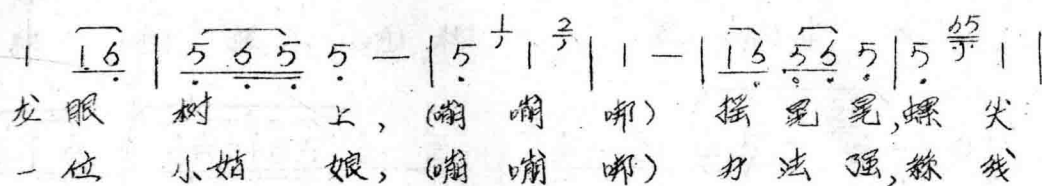 1 1 6 | 5 6 5 5 — | 5 1 1 2 | 1 — | 1 6 5 6 5 | 5 65 1 |
龙 眼 树 上, (嘣 嘣 哪) 摇 晃 晃, 螺 尖
一 位 小 姑 娘, (嘣 嘣 哪) 办 法 强, 称 我